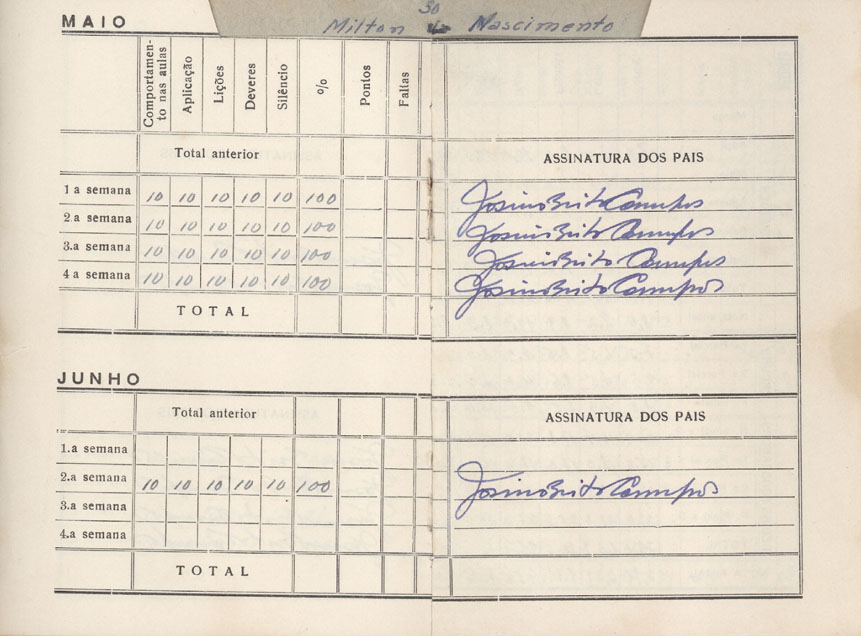 30
MAIO
Milton do Nascimento
Comportamen-
to nas aulas
Aplicação
Lições
Deveres
Silêncio
%
Pontos
Faltas
Total anterior
ASSINATURA DOS PAIS
1 a semana 10 10 10 10 10 100 Josino Brito Campos
2.a semana 10 10 10 10 10 100 Josino Brito Campos
3.a semana 10 10 10 10 10 100 Josino Brito Campos
4 a semana 10 10 10 10 10 100 Josino Brito Campos
TOTAL
JUNHO
Total anterior
ASSINATURA DOS PAIS
1.a semana
2.a semana 10 10 10 10 10 100 Josino Brito Campos
3.a semana
4.a semana
TOTAL